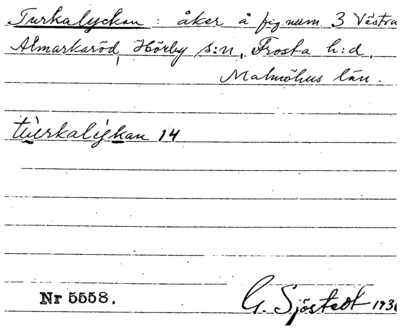 Turkalyckan : åker å fig num 3 Västra
Almarkaröd, Hörby s:n, Frosta h:d,
Malmöhus län.
14
Nr 5558.
G. Sjöstedt 193